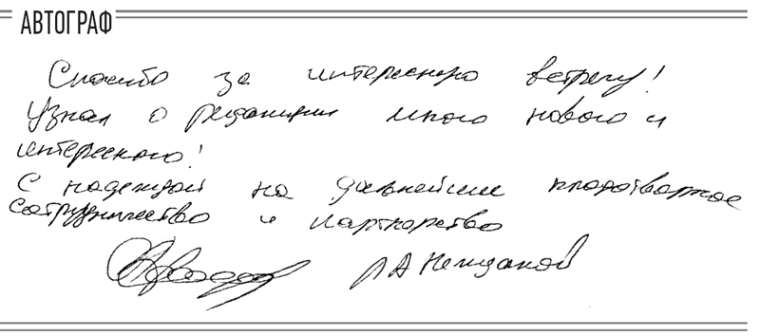 АВТОГРАФ
Спасибо за интересную встречу!
Узнал о редакции много нового и
интересного!
С надеждой на дальнейшее плодотворное
сотрудничество и партнерство